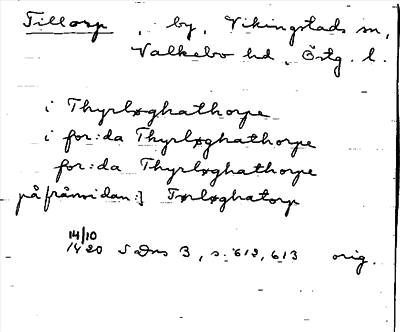 Tillorp, by, Vikingstads sn,
Valkebo hd, Östg. l.
i Thyrløghathorpe
i for:da Thyrløghathorpe
for:da Thyrløghathorpe
påfrånsidan:] Tørløghatorp
14/10
1420 SDns 3, s. 612, 613 orig.